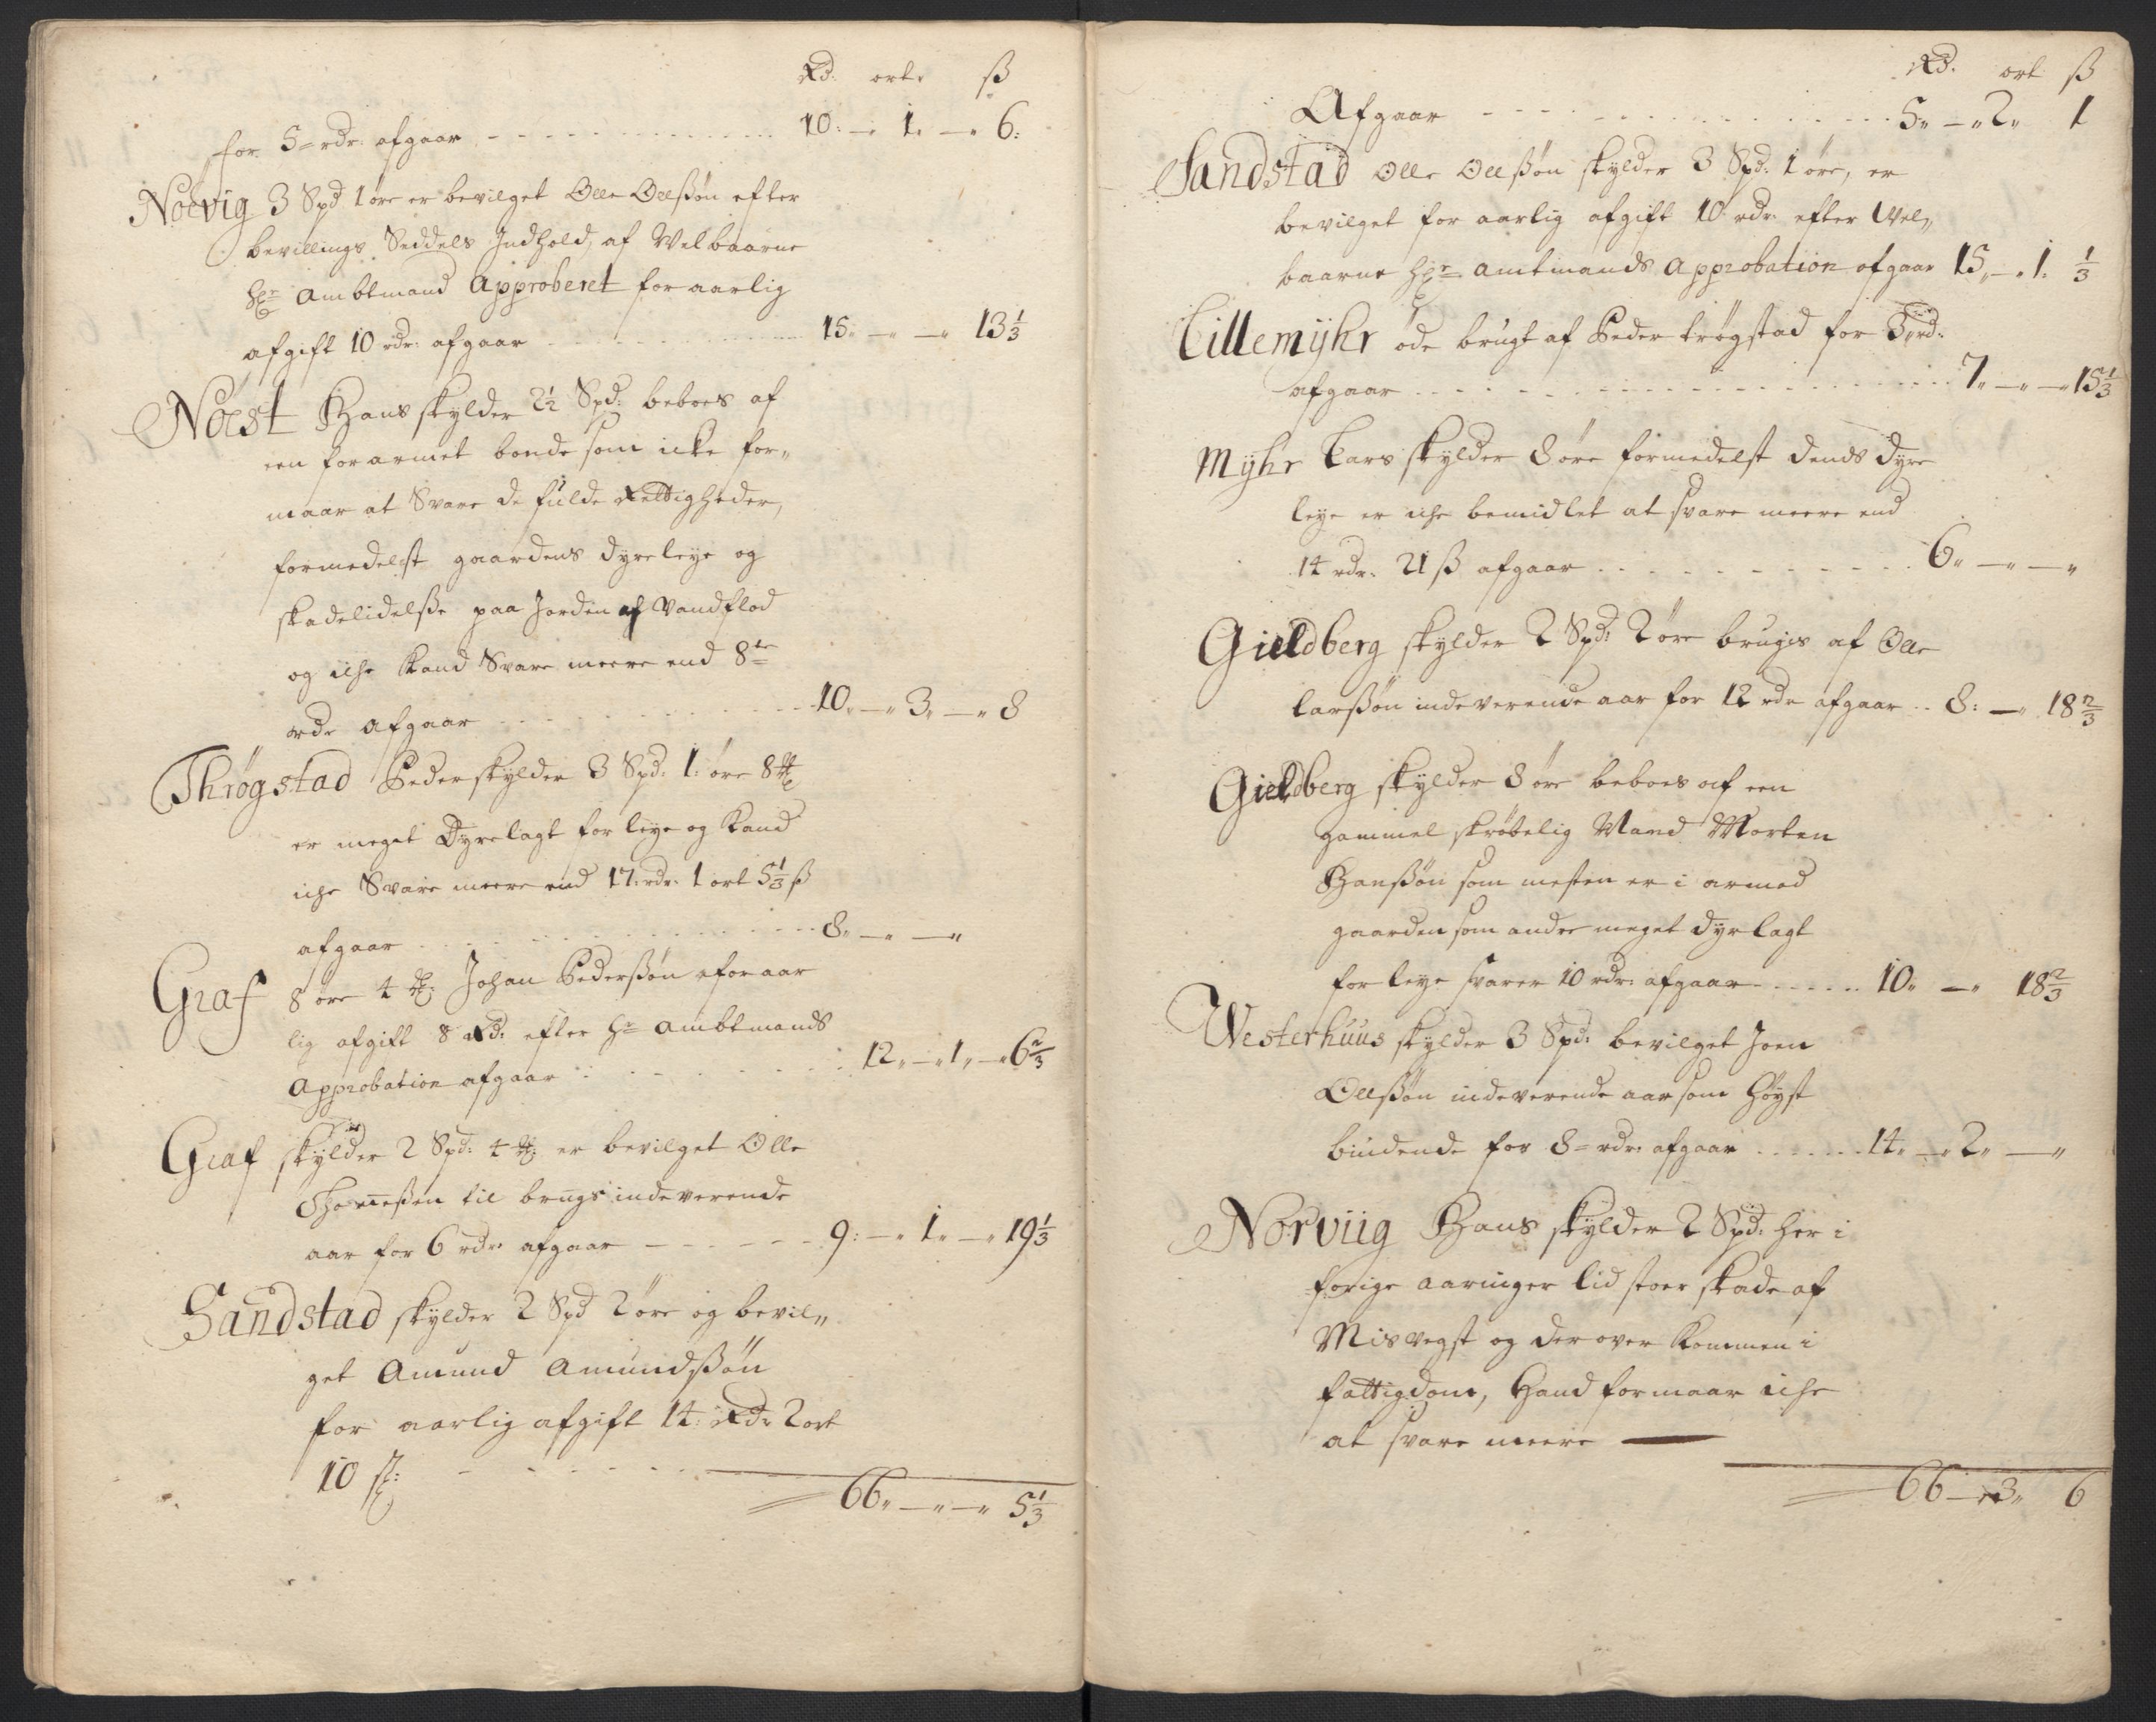 Rd: ort: ß
for 5 rdr: afgaar - - - 10: — 1: — 6:
Norvig 3 Spd 1 øre er bevilget Olle Ollßøn efter
bevillings Seddels Indhold, af Welbaarne
Hr: Ambtmand Approberet for aarlig
afgift 10 rdr: afgaar - - - 15: — — 13 1/3
Noest Hans skylder 2 1/2 Spd: beboes af
een forarmet bonde som icke for„
maar at Svare de fulde Rettigheder,
formedelst gaardens dyre leye og
skadelidelße paa Jorden af Vandflod
og iche kand Svare meere end 8te
rdr afgaar - - - 10 — 3 — 8
Thrøgstad Peder skylder 3 Spd: 1: øre 8
er meget Dyrelagt for leye og kand
iche Svare meere end 17: rdr: 1 ort 5 1/3 ß
afgaar - - - 8 — —
Graf 8 øre 4 Johan Pederßøn for aar
lig afgift 8 Rd: efter Hr: Ambtmands
Approbation afgaar - - - 12 — 1 — 6 2/3
Graf skylder 2 Spd: 4 er bevilget Olle
til brugs indeverende
aar for 6 rdr: afgaar - - - 9: — 1 — 19 1/3
Sandstad skylder 2 Spd 2 øre og bevil„
get Amund Amundßøn
for aarlig afgift 14: Rd: 2 ort
10 ß: - - -
66 — — 5 1/3
Rd. ort ß
Afgaar - - - 5 — 2 1
Sandstad Olle Ollßøn skylder 3 Spd: 1 øre, er
bevilget for aarlig afgift 10 rdr: efter Wel„
baarne Hr: Amtmands Approbation afgaar 15 — 1: 1/3
Lillemyhr øde brugt af Peder trøgstad for 3 rd:
afgaar - - - 7 — — 15 1/3
Myhr Lars skylder 8 øre formedelst dends dyre
leye er iche bemidlet at svare meere end
14 rdr: 21 ß afgaar - - - 6 — —
Gieldberg skylder 2 Spd: 2 øre bruges af Olle
larßøn indeverende aar for 12 rdr afgaar - - 8: — 18 2/3
Gieldberg skylder 8 øre beboes af een
gammel skrøbelig Mand Morten
Hanßøn som mesten er i armod
gaarden som andre meget dyrlagt
for leye svarer 10 rdr: afgaar - - - 10 — 18 2/3
Westerhuus skylder 3 Spd: bevilget Joen
Ollßøn indeverende aar som høyst
biudende for 8 rdr: afgaar - - - 14 — 2 —
Norviig Hans skylder 2 Spd: her i
forige aaringer lid stoer skade af
Misvegst og derover kommen i
fattigdom, Hand formaar iche
at svare meere —
66 — 3 6